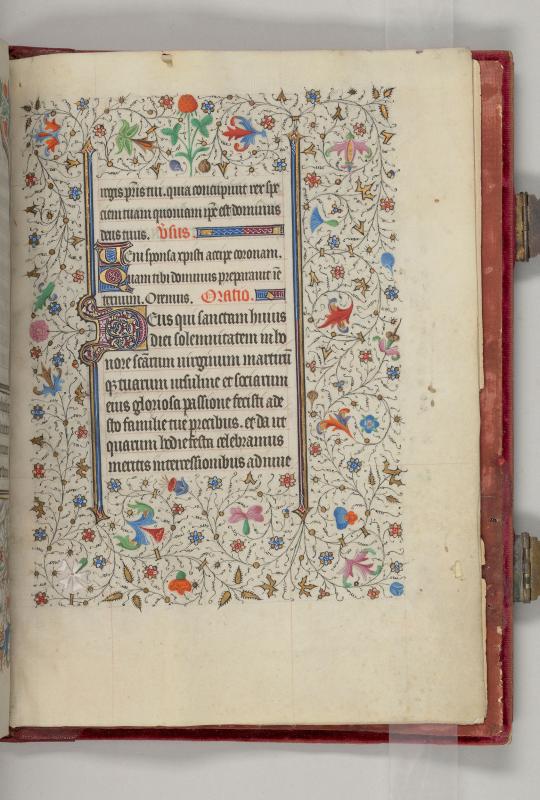 regis p̄ris tui. quia concupiuit rex spe
ciem tuam quoniam ip̄e est dominus
deus tuus. V̄sus.
Ueni sponsa xp̄isti accipe coronam.
Quam tibi dominus preparauit ī e
ternum. Oremus. Oratio.
Deus qui sanctam huius
diei solemnitatem in ho
nore sc̄arum virginum martirū
q̄ tuarum ursuline et sociarum
eius gloriosa passione fecisti ade
sto familie tue precibus. et da ut
quarum hodie festa celebramus
meritis intercessionibus adiuue